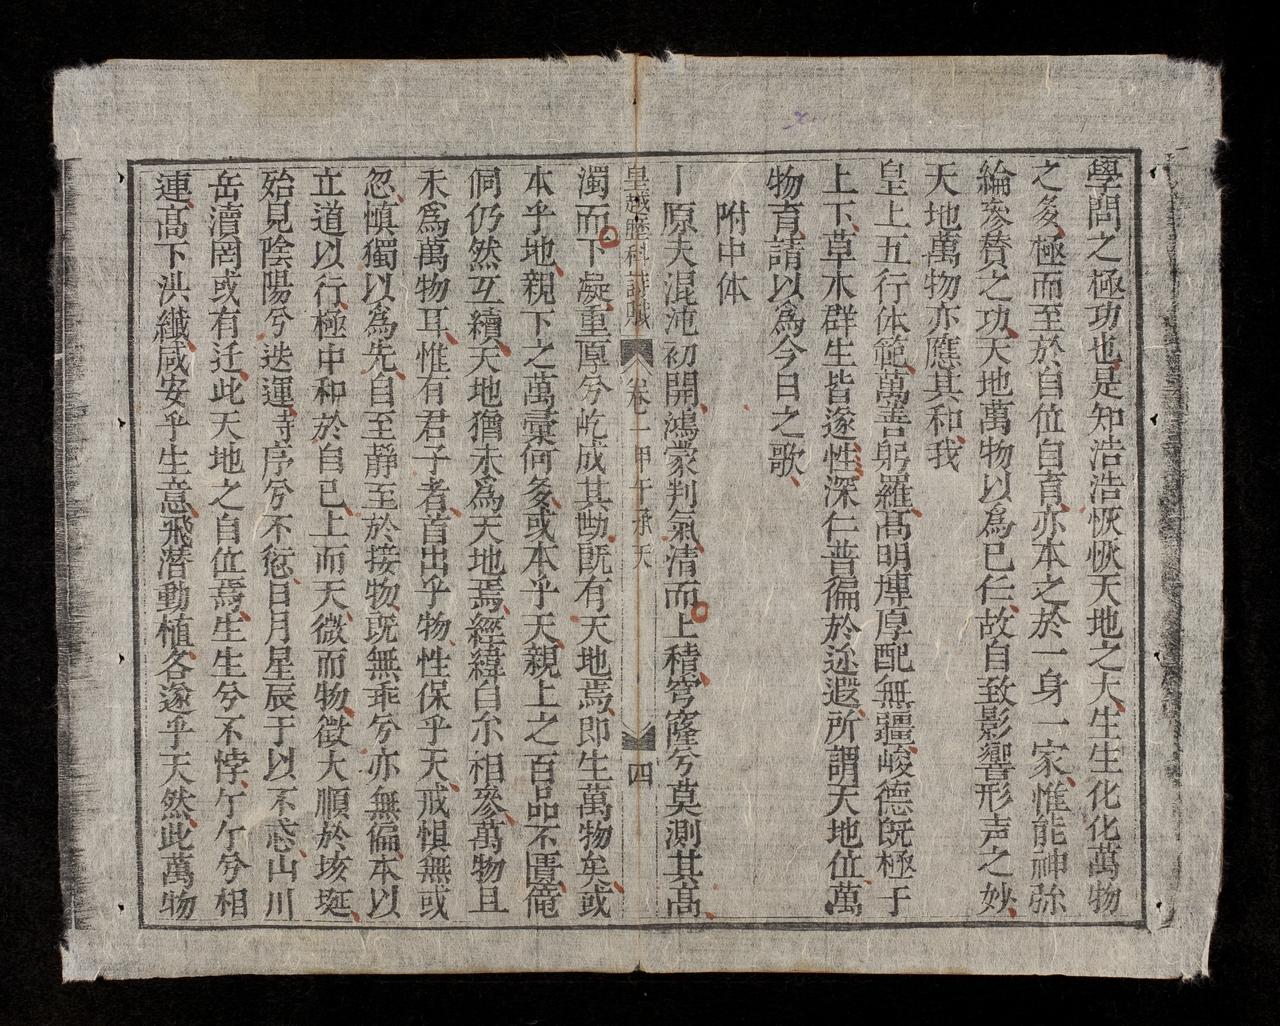 學問之極功也是知浩浩恢恢天地之大生生化化萬物
之多極而至於自位自育亦本之於一身一家惟能神弥
綸參賛之功天地萬物以為已任故自致影響形声之妙
天地萬物亦應其和我
皇上五行体範萬善躬羅髙明塼厚配無疆峻德既極于
上下草木群生皆遂性深仁普徧於迩遐所謂天地位萬
物育請以為今日之歌
附中体
原夫混沌初開鴻蒙判氣清而上積穹窿兮莫測其髙
皇越歴科詩賦 卷一甲午承天 四
濁而下凝重厚兮屹成其坳既有天地焉即生萬物矣或
本乎地親下之萬彙何多或本乎天親上之百品不匱
侗仍然互續天地猶未為天地焉經緯自尒相參萬物且
未為萬物耳惟有君子者首出乎物性保乎天戒惧無或
忽慎獨以為先自至静至於接物既無乖兮亦無偏本以
立道以行極中和於自已上而天微而物徵大順於垓埏
殆見陰陽兮迭運時序兮不愆日月星辰于以不惑山川
岳瀆罔或有迁此天地之自位焉生生兮不悖兮相
連髙下洪纎咸安乎生意飛潜動植各遂乎天然此萬物